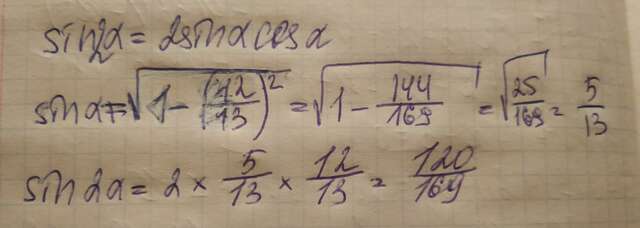 sin2α = 2sinα cosα
sinα = √(1 − (12/13)²) = √(1 − 144/169) = √(25/169) = 5/13
sin 2α = 2 × 5/13 × 12/13 = 120/169